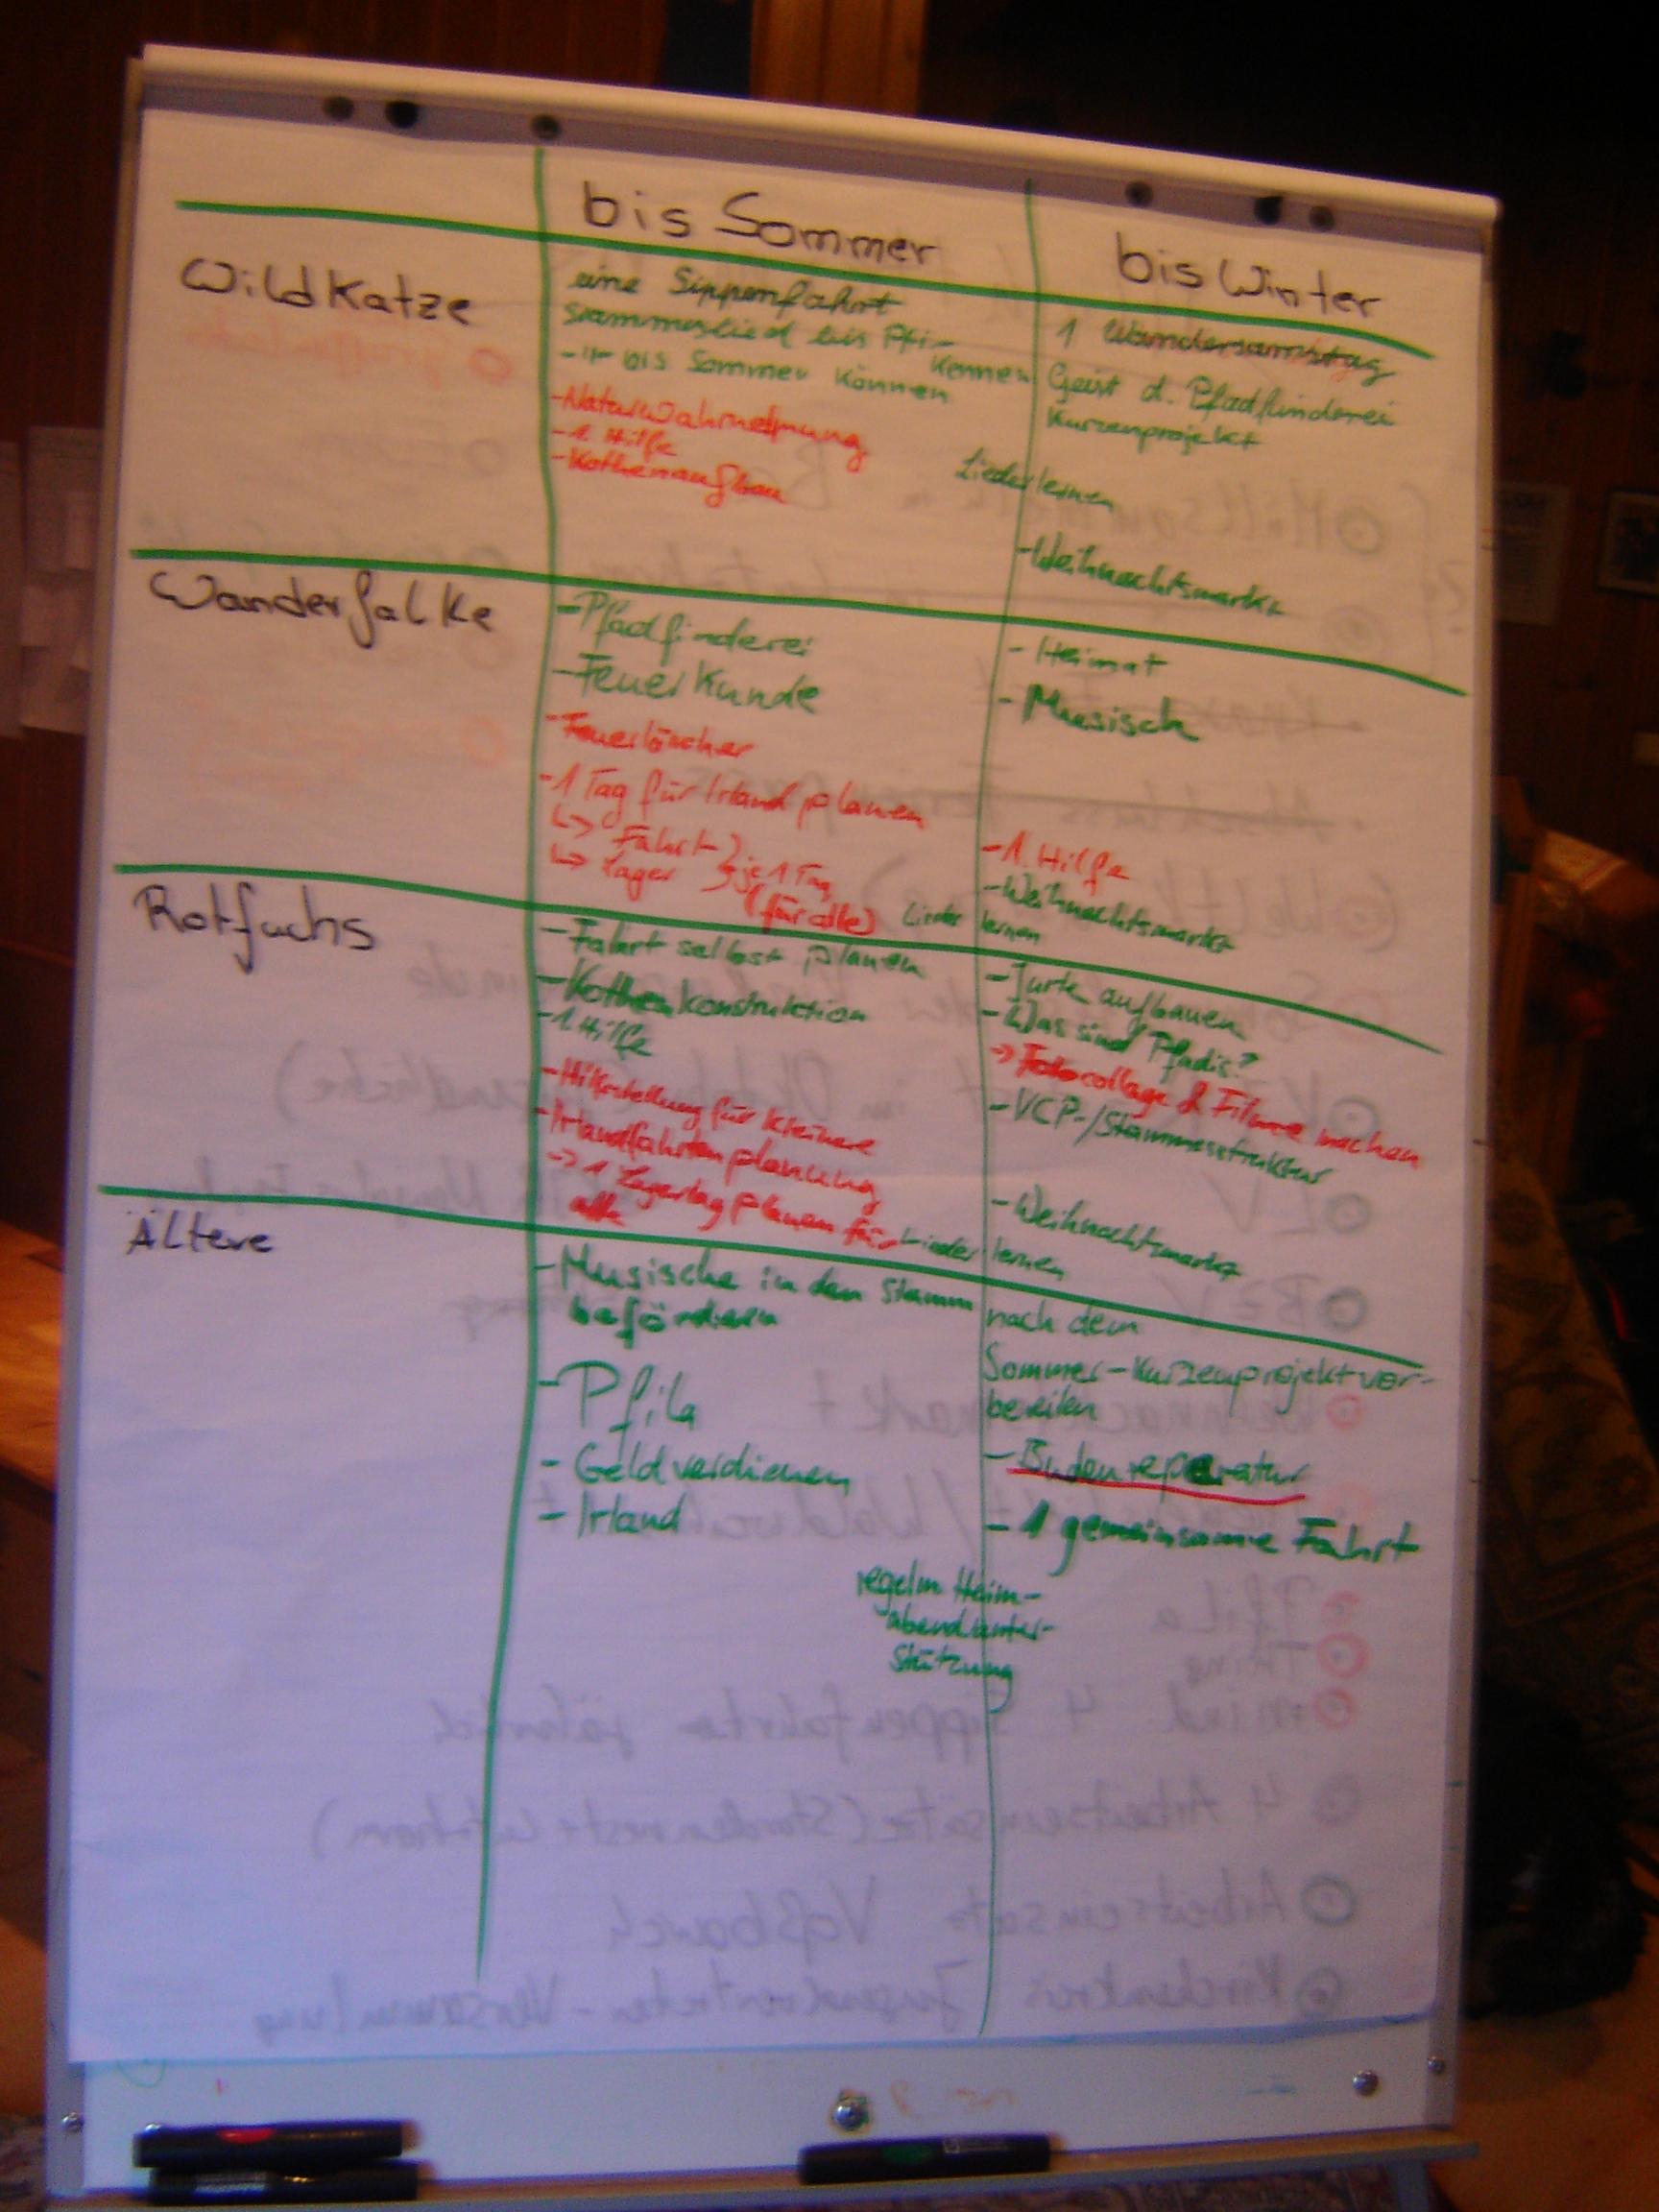 bis Sommer
bis Winter
Wildkatze
eine Sippenfahrt
Stammeslied bis Pfi-
kennen
-"- bis Sommer können
-Naturwahrnehmung
-1. Hilfe
-Kothenaufbau
1 Wandersamstag
Geist d. Pfadfinderei
Kurzenprojekt
Lieder lernen
-Weihnachtsmarkt
Wanderfalke
-Pfadfinderei
-Feuerkunde
-Feuerlöscher
-1 Tag für Irland planen
↳ Fahrt } je 1 Tag
↳ Lager
(für alle)
- Heimat
- Musisch
-1. Hilfe
-Weihnachtsmarkt
Lieder lernen
Rotfuchs
-Fahrt selbst planen
-Kothenkonstruktion
-1. Hilfe
-Hilfestellung für kleinere
-Irlandfahrten planung
-> 1 Lagertag planen für
alle
-Jurte aufbauen
-Was sind Pfadis?
-> Fotocollage & Filme machen
-VCP-/Stammesstruktur
-Weihnachtsmarkt
Lieder lernen
Ältere
-Musische in den Stamm
befördern
-Pfila
- Geld verdienen
- Irland
nach dem
Sommer-Kurzenprojekt vor-
bereiten
- Budenreparatur
- 1 gemeinsame Fahrt
regelm Heim-
abendunter-
stützung